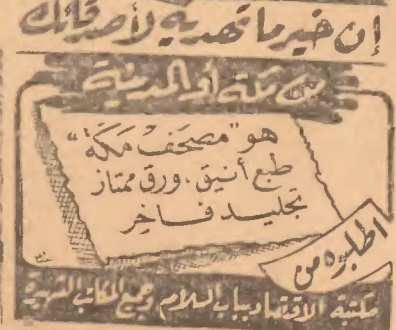 إن خير ما تهديه لأصدقائك
من مكة أو المدينة
هو "مصحف مكة"
طبع أنيق. ورق ممتاز
تجليد فاخر
اطلبوه من
مكتبة الاقتصاد بباب السلام وجميع المكاتب الشهيرة